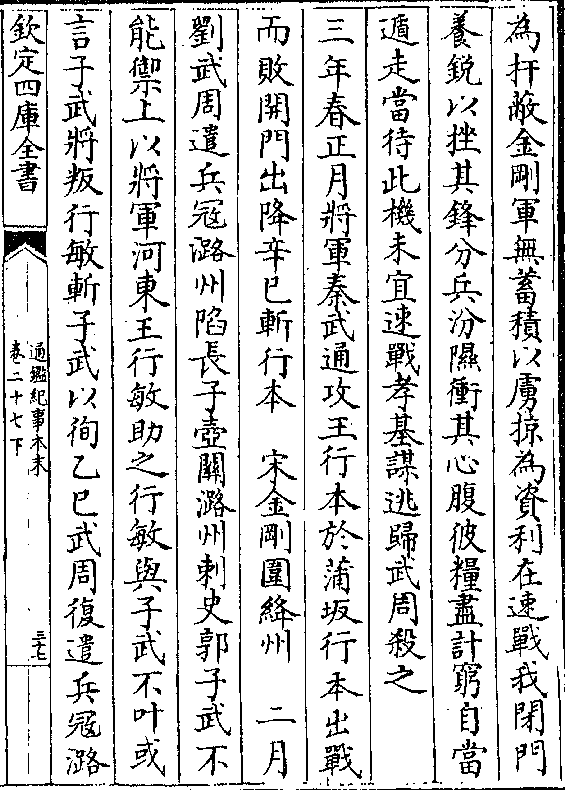 為扞蔽金剛軍無蓄積以虜掠為資利在速戰我閉門
養銳以挫其鋒分兵汾隰衝其心腹彼糧盡計窮自當
遁走當待此機未宜速戰孝基謀逃歸武周殺之
三年春正月將軍秦武通攻王行本於蒲坂行本出戰
而敗開門出降辛巳斬行本　宋金剛圍絳州　二月
劉武周遣兵冦潞州陷長子壺關潞州刺史郭子武不
能禦上以將軍河東王行敏助之行敏與子武不叶或
言子武將叛行敏斬子武以徇乙巳武周復遣兵冦潞
欽定四庫全書
通鑑紀事本末
卷二十七下
三十七